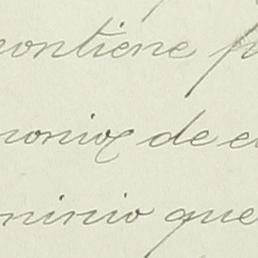 contiene p
monios de e
minio que